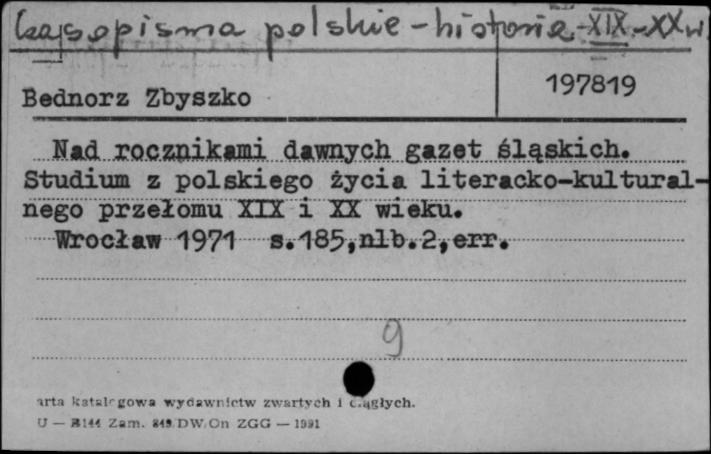 Czasopisma polskie - historia - XIX - XX w.
197819
Bednorz Zbyszko
Nad rocznikami dawnych gazet śląskich.
Studium z polskiego życia literacko-kultural-
nego przełomu XIX i XX wieku.
Wrocław 1971 s.185,nlb.2,err.
9
arta katalogowa wydawnictw zwartych i ciągłych.
U — B144 Zam. 849 DW On ZGG — 1991